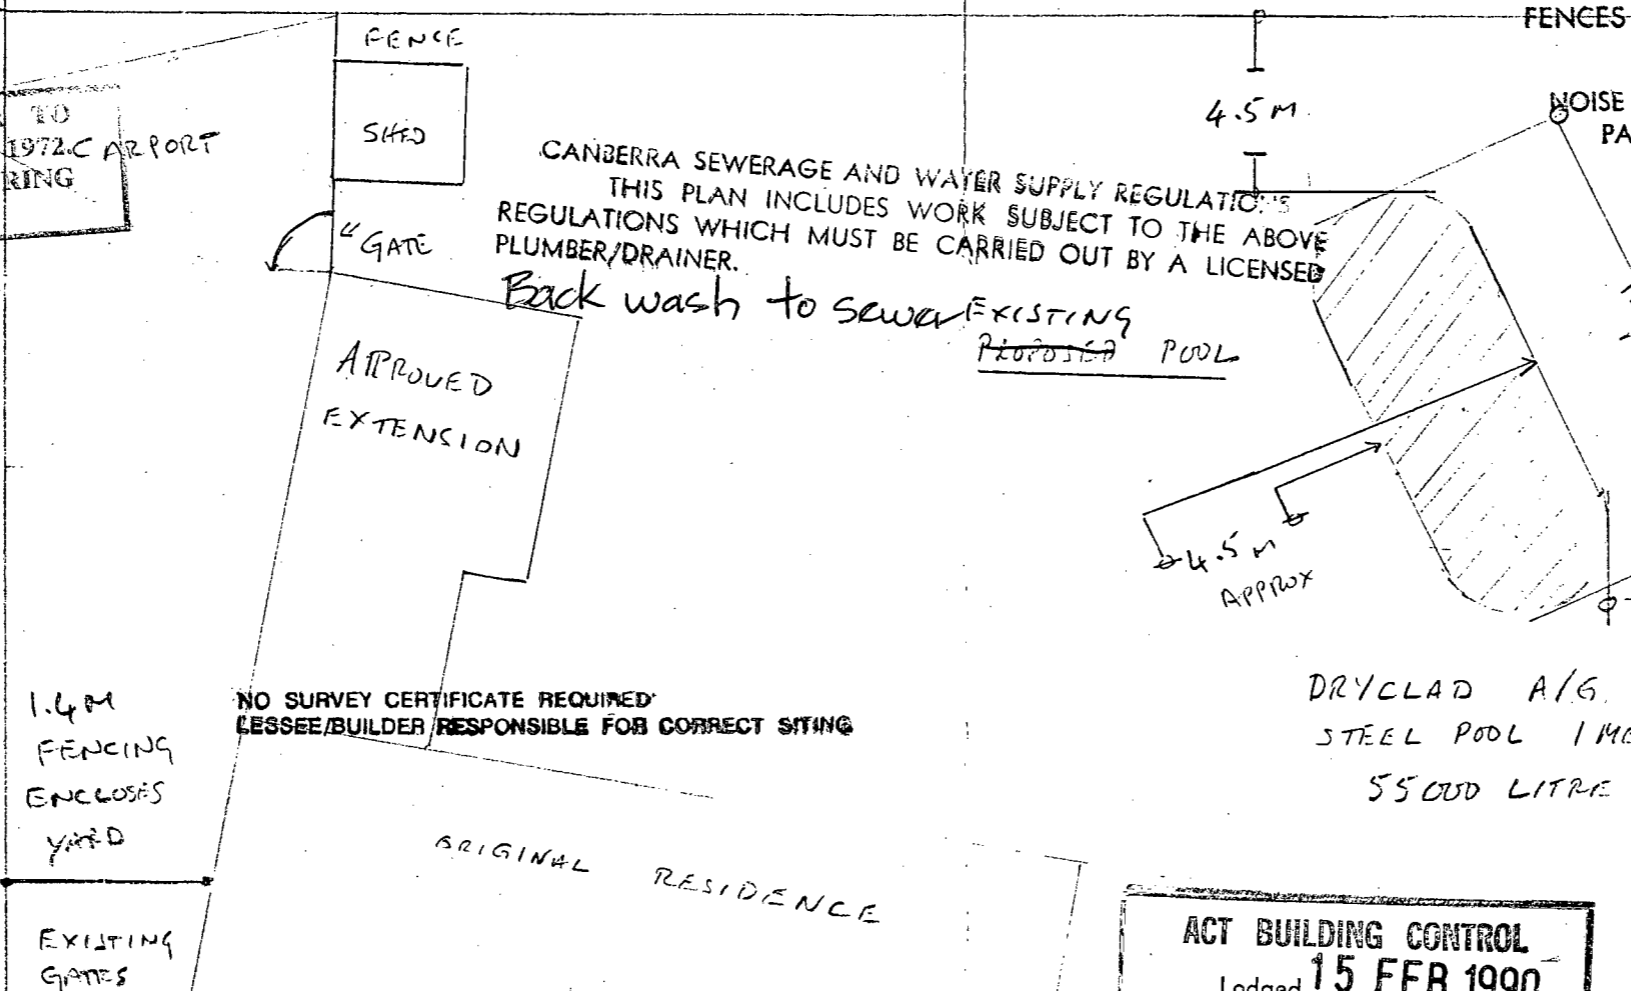 FENCES
FENCE
SHED
TO
1972. CARPORT
RING
4.5 M.
NOISE
PA
CANBERRA SEWERAGE AND WATER SUPPLY REGULATIONS
THIS PLAN INCLUDES WORK SUBJECT TO THE ABOVE
REGULATIONS WHICH MUST BE CARRIED OUT BY A LICENSED
PLUMBER/DRAINER.
GATE
Back wash to sewer
EXISTING
PROPOSED POOL
APPROVED
EXTENSION
4.5 M
APPROX
1.4 M
FENCING
ENCLOSES
YARD
NO SURVEY CERTIFICATE REQUIRED
LESSEE/BUILDER RESPONSIBLE FOR CORRECT SITING
DRYCLAD A/G.
STEEL POOL
55000 LITRE
ORIGINAL RESIDENCE
EXISTING
GATES
ACT BUILDING CONTROL
Lodged 15 FEB 1990